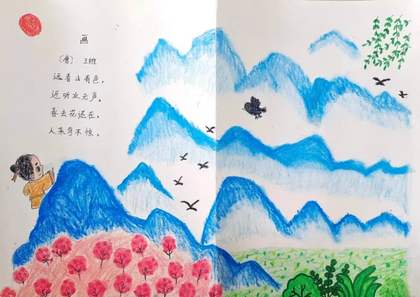 画
(唐) 王维
远看山有色,
近听水无声。
春去花还在,
人来鸟不惊。